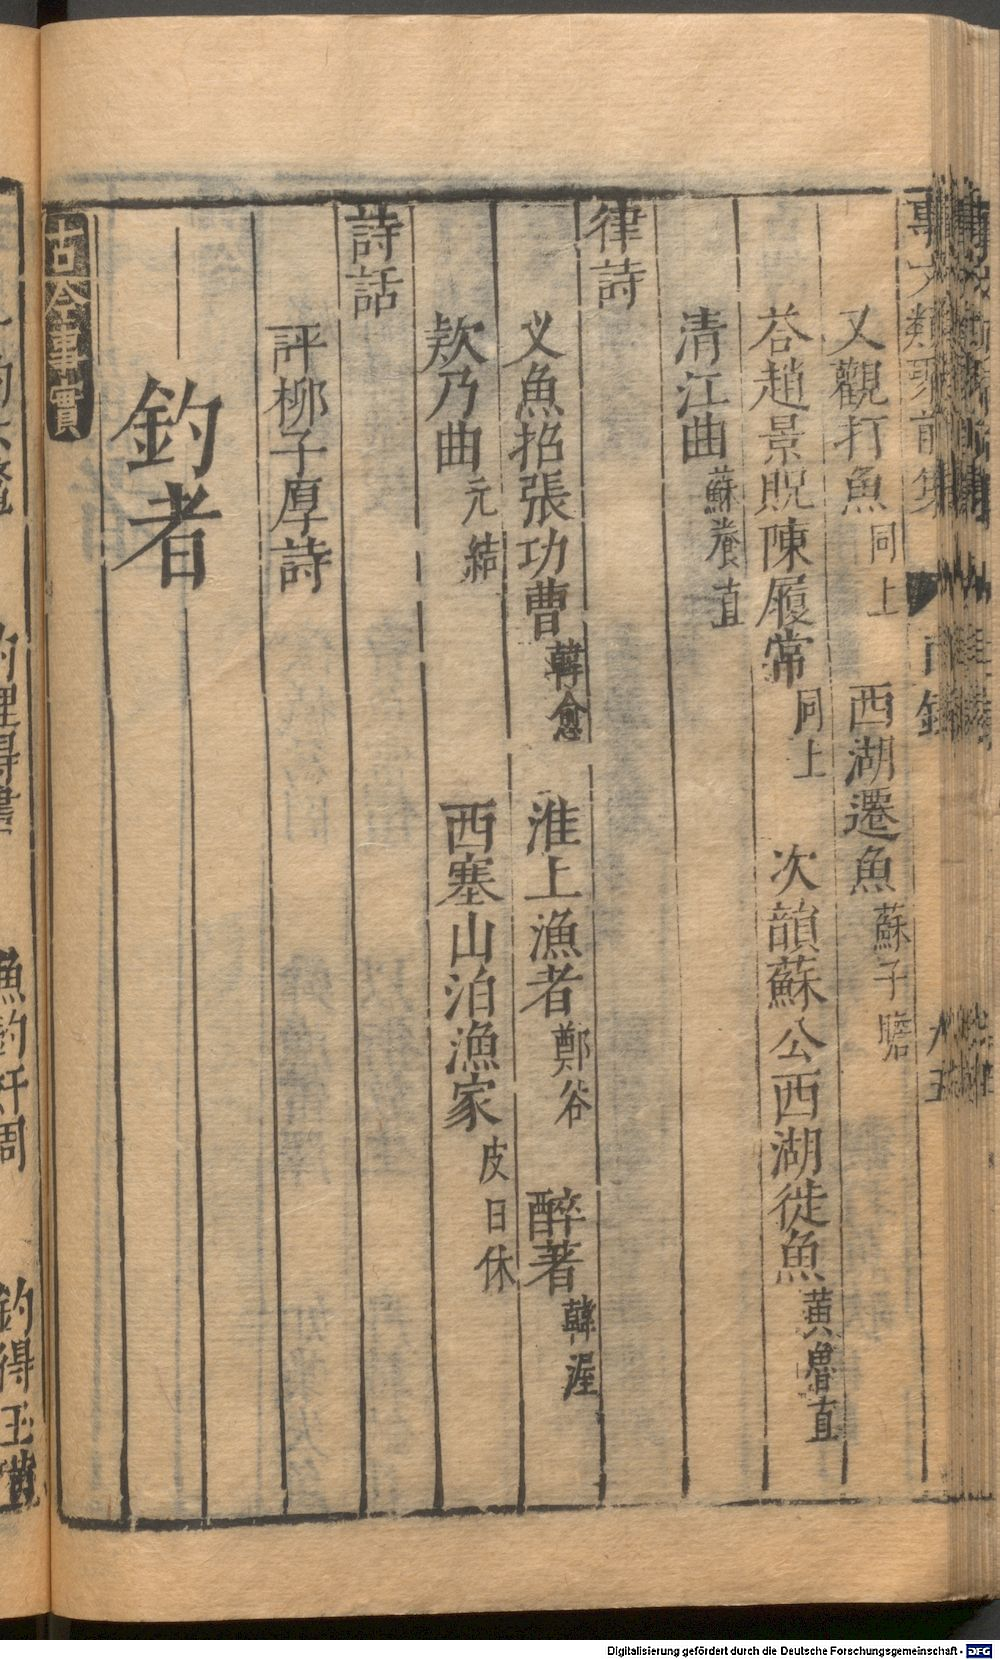 又觀打魚同上 西湖遷魚蘇子瞻
荅趙景貺陳履常同上 次韻蘇公西湖徙魚黄魯直
清江曲蘇養直
律詩
义魚招張功曹韓愈 淮上漁者鄭谷 醉著韓渥
欵乃曲元結 西塞山泊漁家皮日休
詩話
評柳子厚詩
釣者
古今事實
漁釣奸周 釣得玉璜
Digitalisierung gefördert durch die Deutsche Forschungsgemeinschaft - DFG